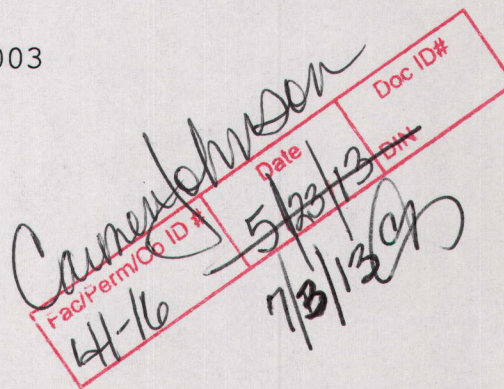 003
Carmen Johnson
Fac/Perm/Co ID # Date Doc ID#
41-16 5/23/13 DIN
7/3/13 CJ